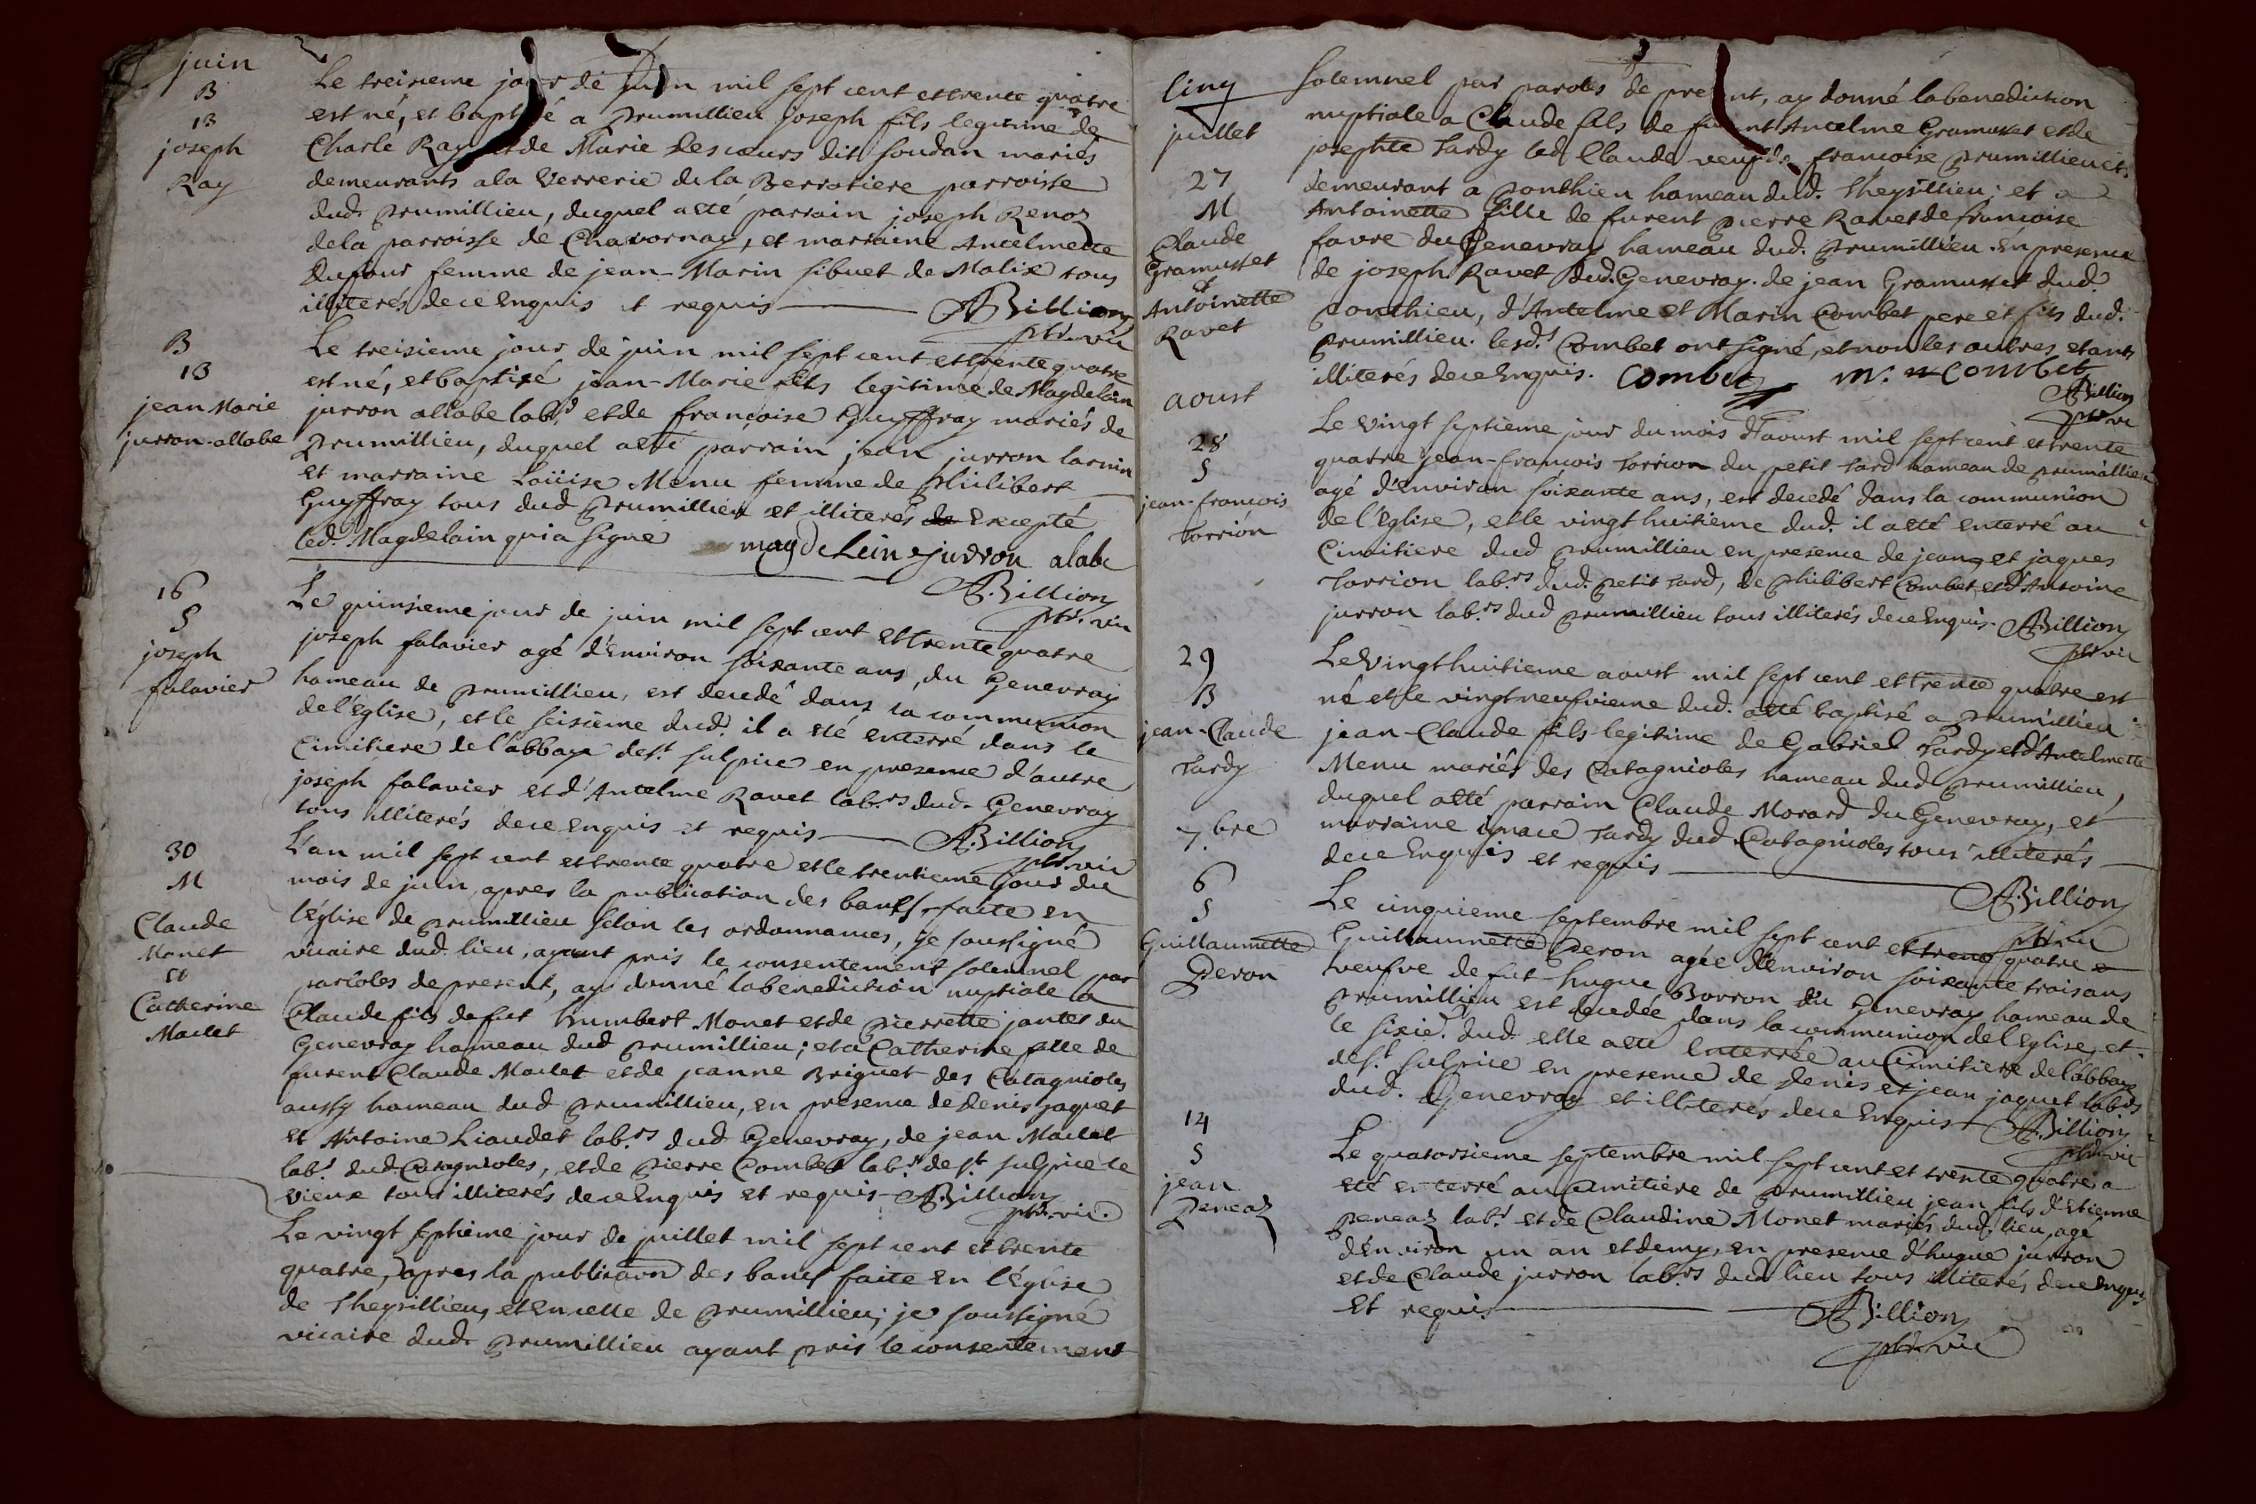 juin
B
13
joseph
Ray
Le treisieme jour de juin mil sept cent et trente quatre
est né, et baptisé a prumillieu joseph fils legitime de
Charle Ray et de Marie Descœurs dit soudan mariés
demeurants a la verrerie de la Berrotiere parroisse
dud. prumillieu, duquel a eté parrain joseph Renoz
de la parroisse de Chavornay, et marraine Antelmette
Dufour femme de jean-Marin sibuet de Malix tous
illiterés de ce Enquis et requis ABillion
ptre vic
B
13
jean Marie
jurron-allabe
Le treisieme jour de juin mil sept cent et trente quatre
est né, et baptisé jean-Marie fils legitime de Magdelain
jurron allabe lab.r et de françoise Guyffray mariés de
prumillieu, duquel a eté parrain jean jurron larnin
et marraine Loüise Menu femme de philibert
Guyffray tous dud prumillieu et illiterés de Excepté
led. Magdelain qui a signé magdelein jurron alabe
ABillion
ptre. vic
16
S
joseph
falavier
Le quinsieme jour de juin mil sept cent et trente quatre
joseph falavier agé d'Environ soixante ans, du Genevray
hameau de prumillieu, est decedé dans la communion
de l'église, et le seisieme dud. il a eté enterré dans le
Cimitiere de l'abbaye de st. sulpice en presence d'autre
joseph falavier et d'Antelme Ravet lab.rs dud. Genevray
tous illiterés de ce enquis et requis ABillion
ptre. vic
30
M
Claude
Monet
et
Catherine
Maclet
L'an mil sept cent et trente quatre et le trentieme jour du
mois de juin, apres la publication des bancs, faite en
l'église de prumillieu selon les ordonnances, je soussigné
vicaire dud. lieu, ayant pris le consentement solemnel par
paroles de present, ay donné la benediction nuptiale a
Claude fils de fut humbert Monet et de pierrette jantet du
Genevray hameau dud prumillieu; et a Catherine fille de
furent Claude Maclet et de jeanne Briguet des Catagnioles
aussy hameau dud prumillieu, en presence de Denis jaquet
et Antoine Liaudet lab.rs dud. Genevray, de jean Maclet
lab.r dud. Catagnioles, et de pierre Combet lab.r de st. sulpice le
vieux tous illiterés de ce Enquis et requis ABillion
ptre. vic.
Le vingt septieme jour de juillet mil sept cent et trente
quatre, apres la publication des bancs faite en l'église
de Theysillieu, et en celle de prumillieu; je soussigné
vicaire dud. prumillieu ayant pris le consentement
Cinq
juillet
27
M
Claude
Gramusset
&
Antoinette
Ravet
solemnel par paroles de present, ay donné la benediction
nuptiale a Claude fils de furent Antelme Gramusset et de
josephte Tardy led Claude veuf de francoise prumillieu et
demeurant a ponthieu hameau dud. Theysillieu; et a
Antoinette fille de furent pierre Ravet de francoise
favre du Genevray hameau dud. prumillieu. En presence
de joseph Ravet dud. Genevray. de jean Gramusset dud.
ponthieu, d'Antelme et Marin Combet pere et fils dud.
prumillieu. lesd.s Combet ont signé, et non les autres etants
illiterés de ce Enquis. Combet m. Combet
ABillion
ptre vic
aoust
28
S
jean-francois
Torrion
Le vingt septieme jour du mois d'aoust mil sept cent et trente
quatre jean-francois Torrion du petit Tard hameau de prumillieu
agé d'Environ soixante ans, est decedé dans la communion
de l'église, et le vingt huitieme dud. il a eté enterré au
Cimitiere dud prumillieu en presence de jean et jaques
Torrion lab.rs dud. petit Tard, de philibert Combet et d'Antoine
jurron lab.rs dud prumillieu tous illiterés de ce enquis. ABillion
ptre vic
29
B
jean-Claude
Tardy
Le vingt huitieme aoust mil sept cent et trente quatre est
né et le vingt neufvieme dud. a eté baptisé a prumillieu
jean-Claude fils legitime de Gabriel Tardy et d'Antelmette
Menu mariés des Catagnioles hameau dud prumillieu,
duquel a eté parrain Claude Morard du Genevray, et
marraine ignace Tardy dud Catagnioles tous illiterés
de ce Enquis et requis
ABillion
ptre vic
7.bre
6
S
Guillaumette
Peron
Le cinquieme septembre mil sept cent et trente quatre
Guillaumette Peron agée d'environ soixante trois ans
veufve de fut hugue Borron du Genevray hameau de
prumillieu est decedée dans la communion de l'Eglise, et
le sixie. dud. elle a eté enterrée au Cimitiere de l'abbaye
de st. sulpice en presence de Denis et jean jaquet lab.rs
dud. Genevray et illiterés de ce Enquis ABillion
ptre vic
14
S
jean
Peneaz
Le quatorsieme septembre mil sept cent et trente quatre a
eté enterré au Cimitiere de prumillieu jean fils d'Etienne
Peneaz lab.r et de Claudine Monet mariés dud. lieu, agé
d'Environ un an et demy, en presence d'hugue jurron
et de Claude jurron lab.rs dud lieu tous illiterés de ce enquis
et requis ABillion
ptre vic